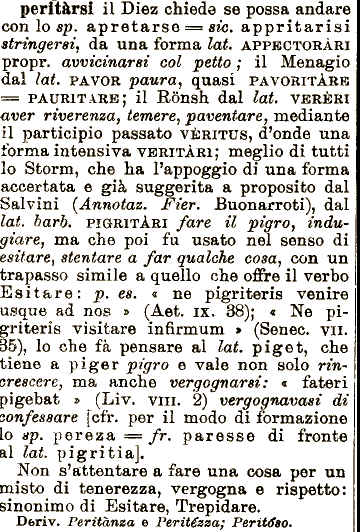 peritàrsi il Diez chiede se possa andare
con lo sp. apretarse = sic. appritarisi
stringersi, da una forma lat. APPECTORÀRI
propr. avvicinarsi col petto; il Menagio
dal lat. PAVOR paura, quasi PAVORITÀRE
= PAURITARE; il Rönsh dal lat. VERÈRI
aver riverenza, temere, paventare, mediante
il participio passato VÈRITUS, d'onde una
forma intensiva VERITÀRI; meglio di tutti
lo Storm, che ha l'appoggio di una forma
accertata e già suggerita a proposito dal
Salvini (Annotaz. Fier. Buonarroti), dal
lat. barb. PIGRITÀRI fare il pigro, indu-
giare, ma che poi fu usato nel senso di
esitare, stentare a far qualche cosa, con un
trapasso simile a quello che offre il verbo
Esitare: p. es. « ne pigriteris venire
usque ad nos » (Aet. IX. 38); « Ne pi-
griteris visitare infirmum » (Senec. VII.
35), lo che fà pensare al lat. piget, che
tiene a piger pigro e vale non solo rin-
crescere, ma anche vergognarsi: « fateri
pigebat » (Liv. VIII. 2) vergognavasi di
confessare [cfr. per il modo di formazione
lo sp. pereza = fr. paresse di fronte
al lat. pigritia].
Non s'attentare a fare una cosa per un
misto di tenerezza, vergogna e rispetto:
sinonimo di Esitare, Trepidare.
Deriv. Peritànza e Peritézza; Peritóso.